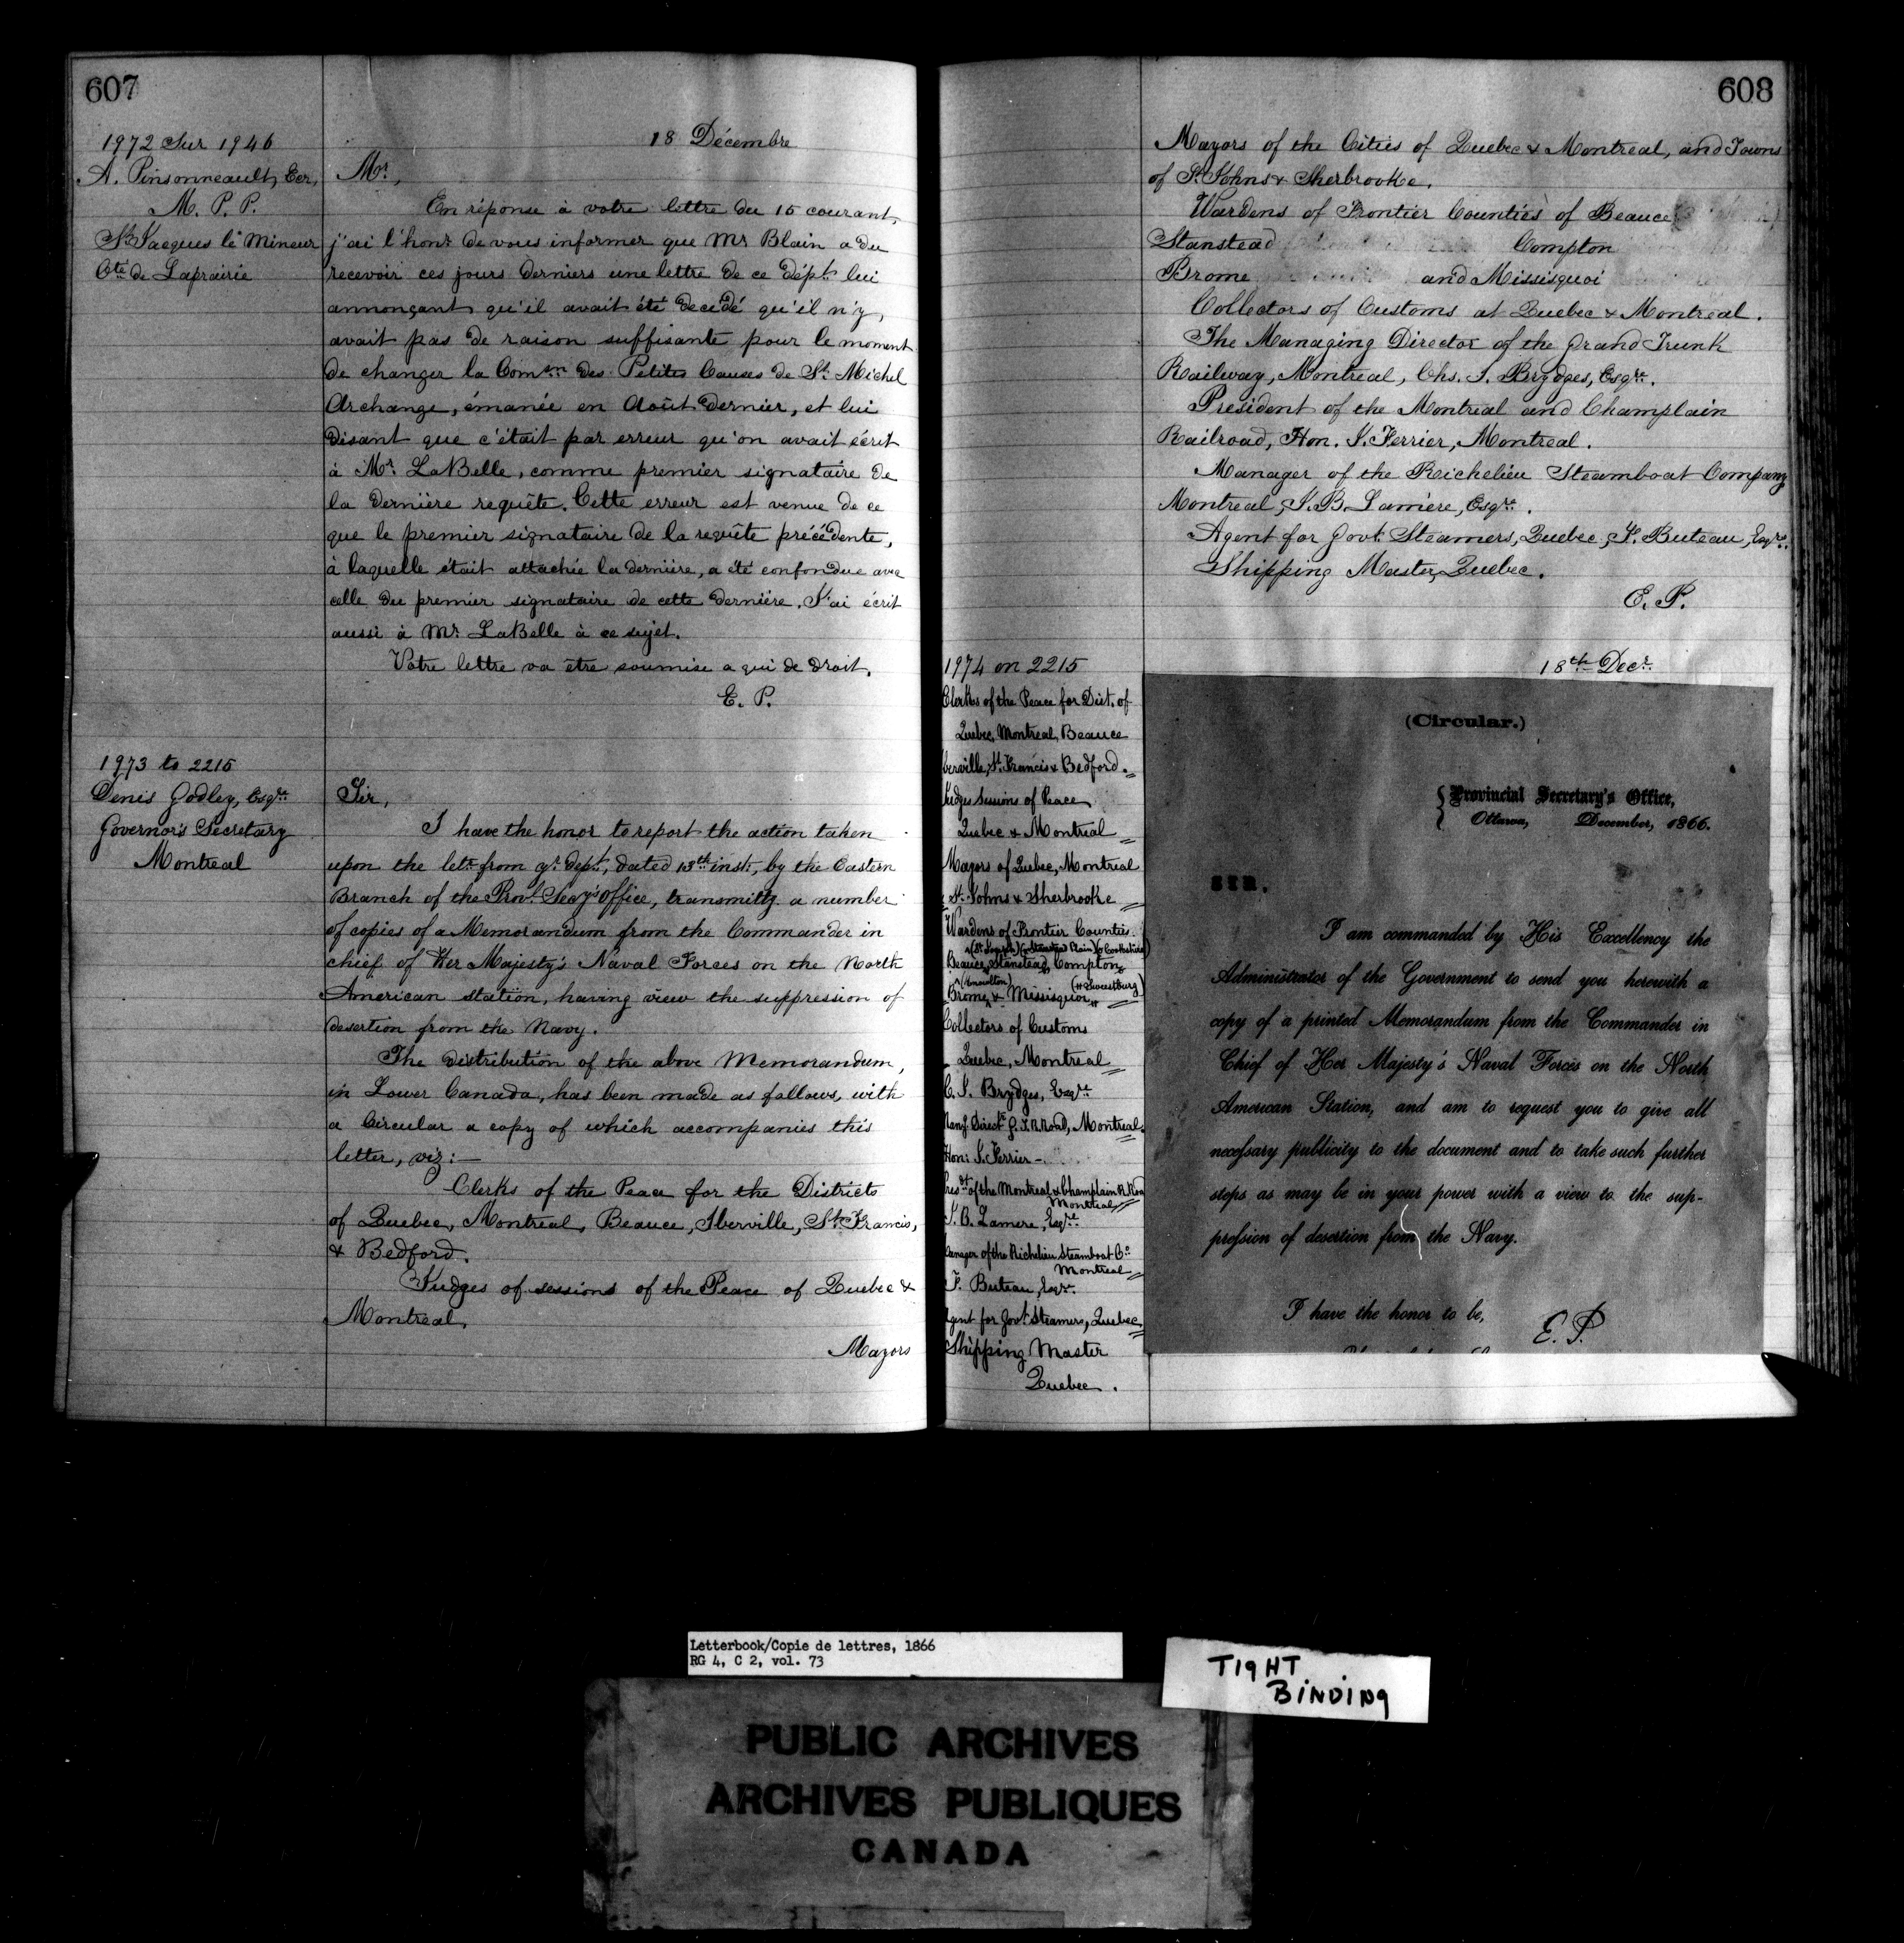 607
1972 Sur 1946
A. Pinsonneault, Ecr,
M. P. P.
St. Jacques le Mineur
Cté de Laprairie
18 Décembre
Mr,
En réponse à votre lettre du 15 courant,
j'ai l'honr de vous informer que Mr Blain a du
recevoir ces jours derniers une lettre de ce dépt lui
annonçant qu'il avait été decidé qu'il n'y,
avait pas de raison suffisante pour le moment
de changer la Comon des Petites Causes de St. Michel
Archange, émanée en Août dernier, et lui
disant que c'était par erreur qu'on avait écrit
à Mr LaBelle, comme premier signataire de
la dernière requête. Cette erreur est venue de ce
que le premier signataire de la requête précédente,
à laquelle était attachée la dernière, a été confondue avec
celle du premier signataire de cette dernière. J'ai écrit
aussi à Mr LaBelle à ce sujet.
Votre lettre va être soumise a qui de droit.
E. P.
1973 to 2215
Denis Godley, Esqre
Governor's Secretary
Montreal
Sir,
I have the honor to report the action taken
upon the letr from yr dept, dated 13th inst, by the Eastern
Branch of the Provl Secy's office, transmittg a number
of copies of a Memorandum from the Commander in
chief of Her Majesty's Naval Forces on the North
American station, having view the suppression of
desertion from the Navy.
The distribution of the above Memorandum,
in Lower Canada, has been made as follows, with
a Circular a copy of which accompanies this
letter, viz:—
Clerks of the Peace for the Districts
of Quebec, Montreal, Beauce, Iberville, St. Francis,
& Bedford.
Judges of sessions of the Peace of Quebec &
Montreal,
Mayors
608
Mayors of the Cities of Quebec & Montreal, and Towns
of St. Johns & Sherbrooke.
Wardens of Frontier Counties of Beauce
Stanstead Compton
Brome and Missisquoi
Collectors of Customs at Quebec & Montreal.
The Managing Director of the Grand Trunk
Railway, Montreal, Chs. J. Brydges, Esqre.
President of the Montreal and Champlain
Railroad, Hon. J. Ferrier, Montreal.
Manager of the Richelieu Steamboat Company
Montreal, J. B. Lamère, Esqre.
Agent for Govt Steamers, Quebec, F. Buteau, Esqre.
Shipping Master, Quebec.
E. P.
1974 on 2215
Clerks of the Peace for Dist. of
Quebec, Montreal, Beauce
Iberville, St. Francis & Bedford.
Judges Sessions of Peace
Quebec & Montreal
Mayors of Quebec, Montreal
St. Johns & Sherbrooke
Wardens of Frontier Counties.
Beauce, Stanstead, Compton,
(Knowlton)
Brome & Missisquoi
Collectors of Customs
Quebec, Montreal
C. J. Brydges, Esqre
Mang. Directr G. T. R. Road, Montreal.
Hon: J. Ferrier -
Presdt of the Montreal & Champlain R. Road
Montreal
J. B. Lamere, Esqre
Manager of the Richelieu Steamboat Co
Montreal
F. Buteau, Esqr.
Agent for Govt Steamers, Quebec
Shipping Master
Quebec.
18th Decr.
(Circular.)
Provincial Secretary's Office,
Ottawa, December, 1866.
SIR,
I am commanded by His Excellency the
Administrator of the Government to send you herewith a
copy of a printed Memorandum from the Commander in
Chief of Her Majesty's Naval Forces on the North
American Station, and am to request you to give all
necessary publicity to the document and to take such further
steps as may be in your power with a view to the sup-
pression of desertion from the Navy.
I have the honor to be,
E. P.
Letterbook/Copie de lettres, 1866
RG 4, C 2, vol. 73
TIGHT
BINDING
PUBLIC ARCHIVES
ARCHIVES PUBLIQUES
CANADA